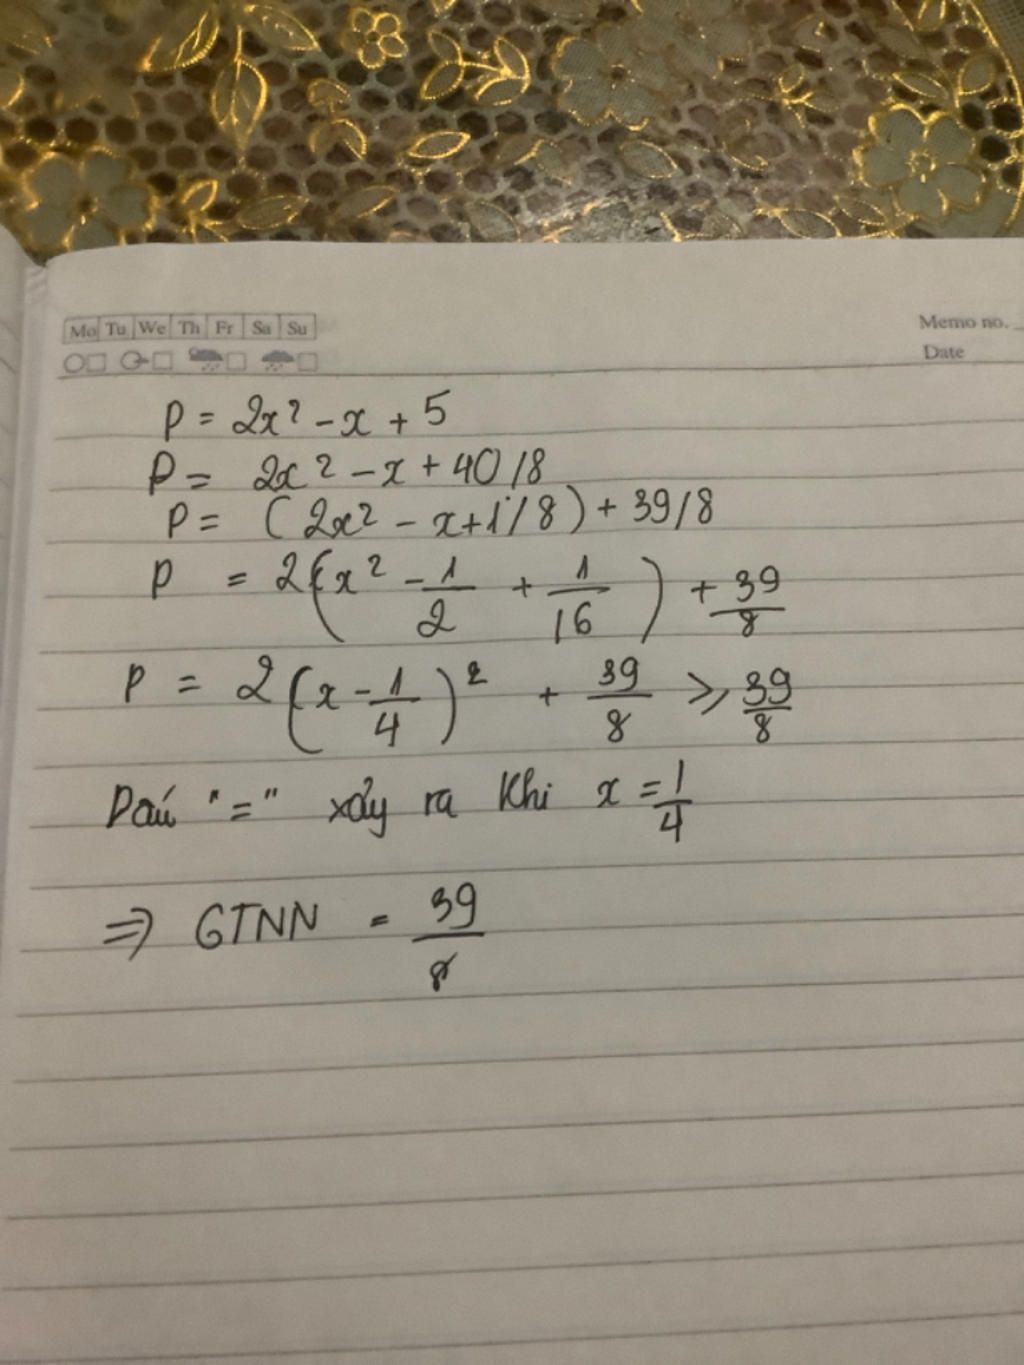 Mo Tu We Th Fr Sa Su
Memo no.
Date
P = 2x² - x + 5
P = 2x² - x + 40/8
P = (2x² - x + 1/8) + 39/8
P = 2(x² - 1/2 + 1/16) + 39/8
P = 2(x - 1/4)² + 39/8 ≥ 39/8
Dấu "=" xảy ra khi x = 1/4
=> GTNN = 39/8